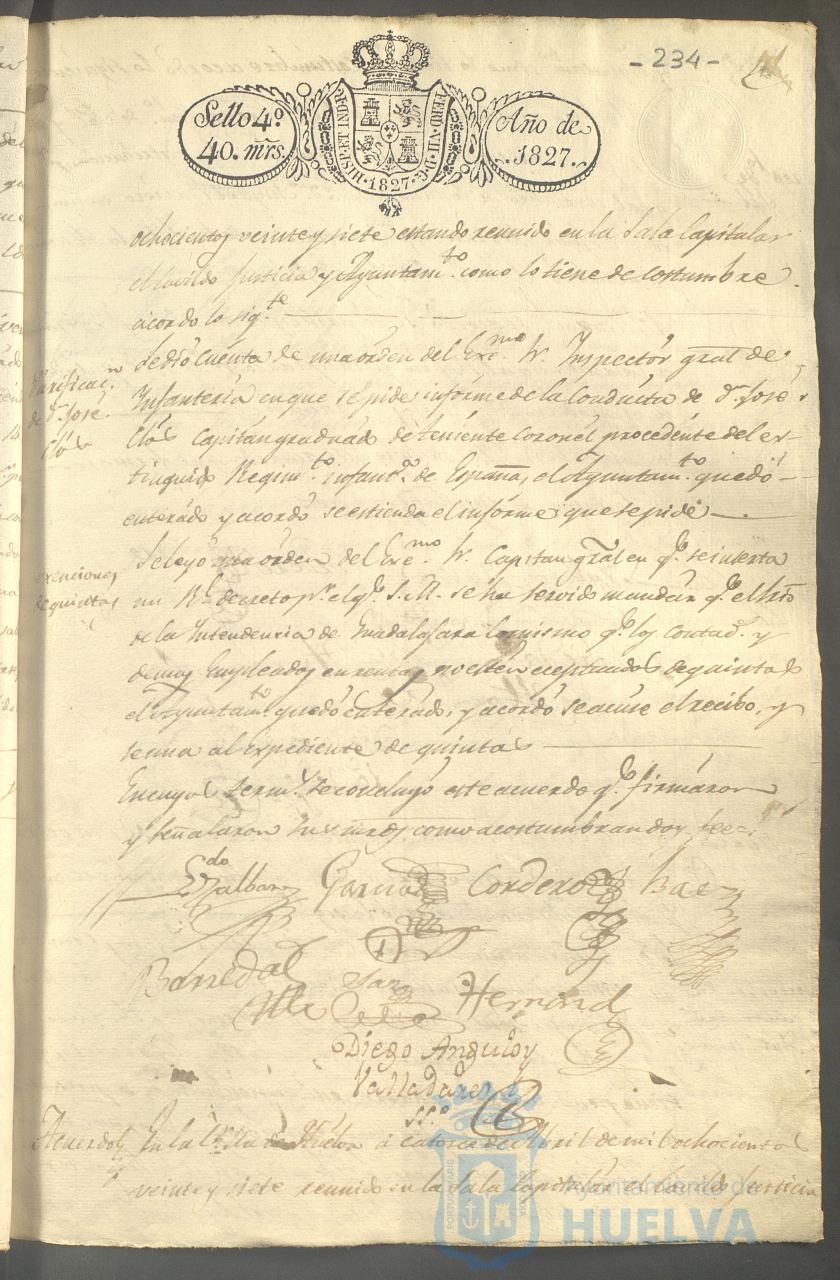 - 234 -
Sello 4º
40. mrs.
HISP. ET IND. R.
FERD. VII. D. G.
·1827·
Año de
.1827.
ochocientos veinte y siete estando reunido en la Sala Capitular
el Cavildo Justicia y Ayuntam.to como lo tiene de costumbre
acordo lo sig.te
Purificac.n
de Dn. José
Clós
Se dió cuenta de una orden del Exc.mo Sr. Inspector gral de
Infantería en que se pide informe de la Conducta de Dn. José
Clós Capitan graduado de teniente Coronel procedente del ex-
tinguido Regim.to infant.a de España, el Ayuntam.to quedó
enterado y acordó se estienda el informe que se pide
exenciones
de quintas
Se leyó una orden del Exc.mo Sr. Capitan gral en qe. se inserta
un Rl. decreto pr. el qe. S. M. se ha servido mandar qe. el
de la Intendencia de Guadalajara lo mismo qe. los Contad.s y
demas Empleados en rentas no estén exceptuados de quintas
el Ayuntam.to quedó enterado, y acordó se acuse el recibo, y
se una al expediente de quintas
En cuyos term.s se concluyó este acuerdo qe. firmaron
y señalaron sus mrds como acostumbran doy fee=
Garcia Cordero Baez
Barreda
Hernand
Diego Angulo y
Valladares
SS.o
Acuerdo En la Villa de Huelva á catorce de Abril de mil ochocientos
veinte y siete reunido en la Sala Capitular el Cavildo Justicia
Ayuntamiento de
HUELVA